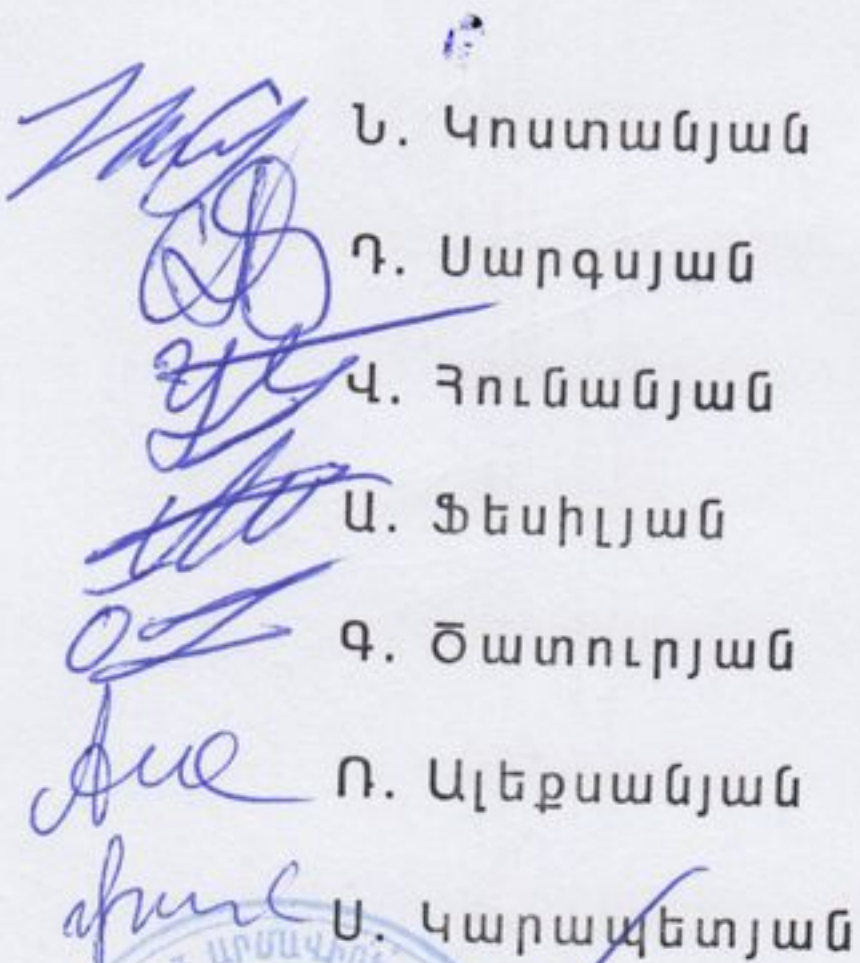 Ն. Կոստանյան
Դ. Սարգսյան
Վ. Հունանյան
Ա. Ֆեսիլյան
Գ. Ծատուրյան
Ռ. Ալեքսանյան
Ս. Կարապետյան